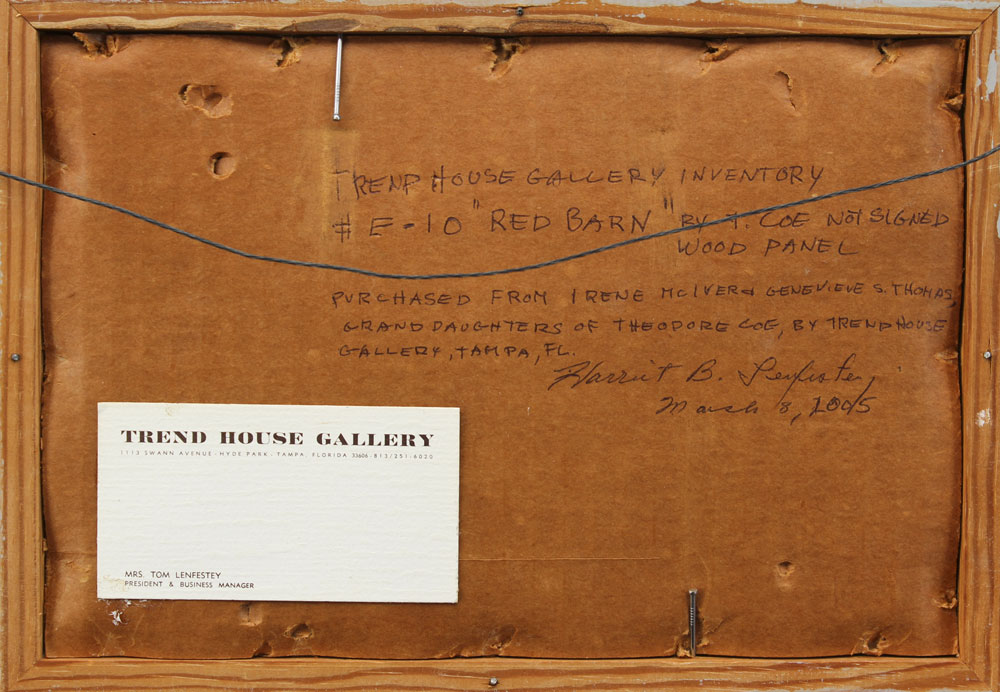 TREND HOUSE GALLERY INVENTORY
# E-10 "RED BARN" BY T. COE NOT SIGNED
WOOD PANEL
PURCHASED FROM IRENE McIVER & GENEVIEVE S. THOMAS,
GRANDDAUGHTERS OF THEODORE COE, BY TREND HOUSE
GALLERY, TAMPA, FL.
Harriet B. Lenfestey
March 8, 2005
TREND HOUSE GALLERY
1113 SWANN AVENUE · HYDE PARK · TAMPA, FLORIDA 33606 · 813/251-6020
MRS. TOM LENFESTEY
PRESIDENT & BUSINESS MANAGER